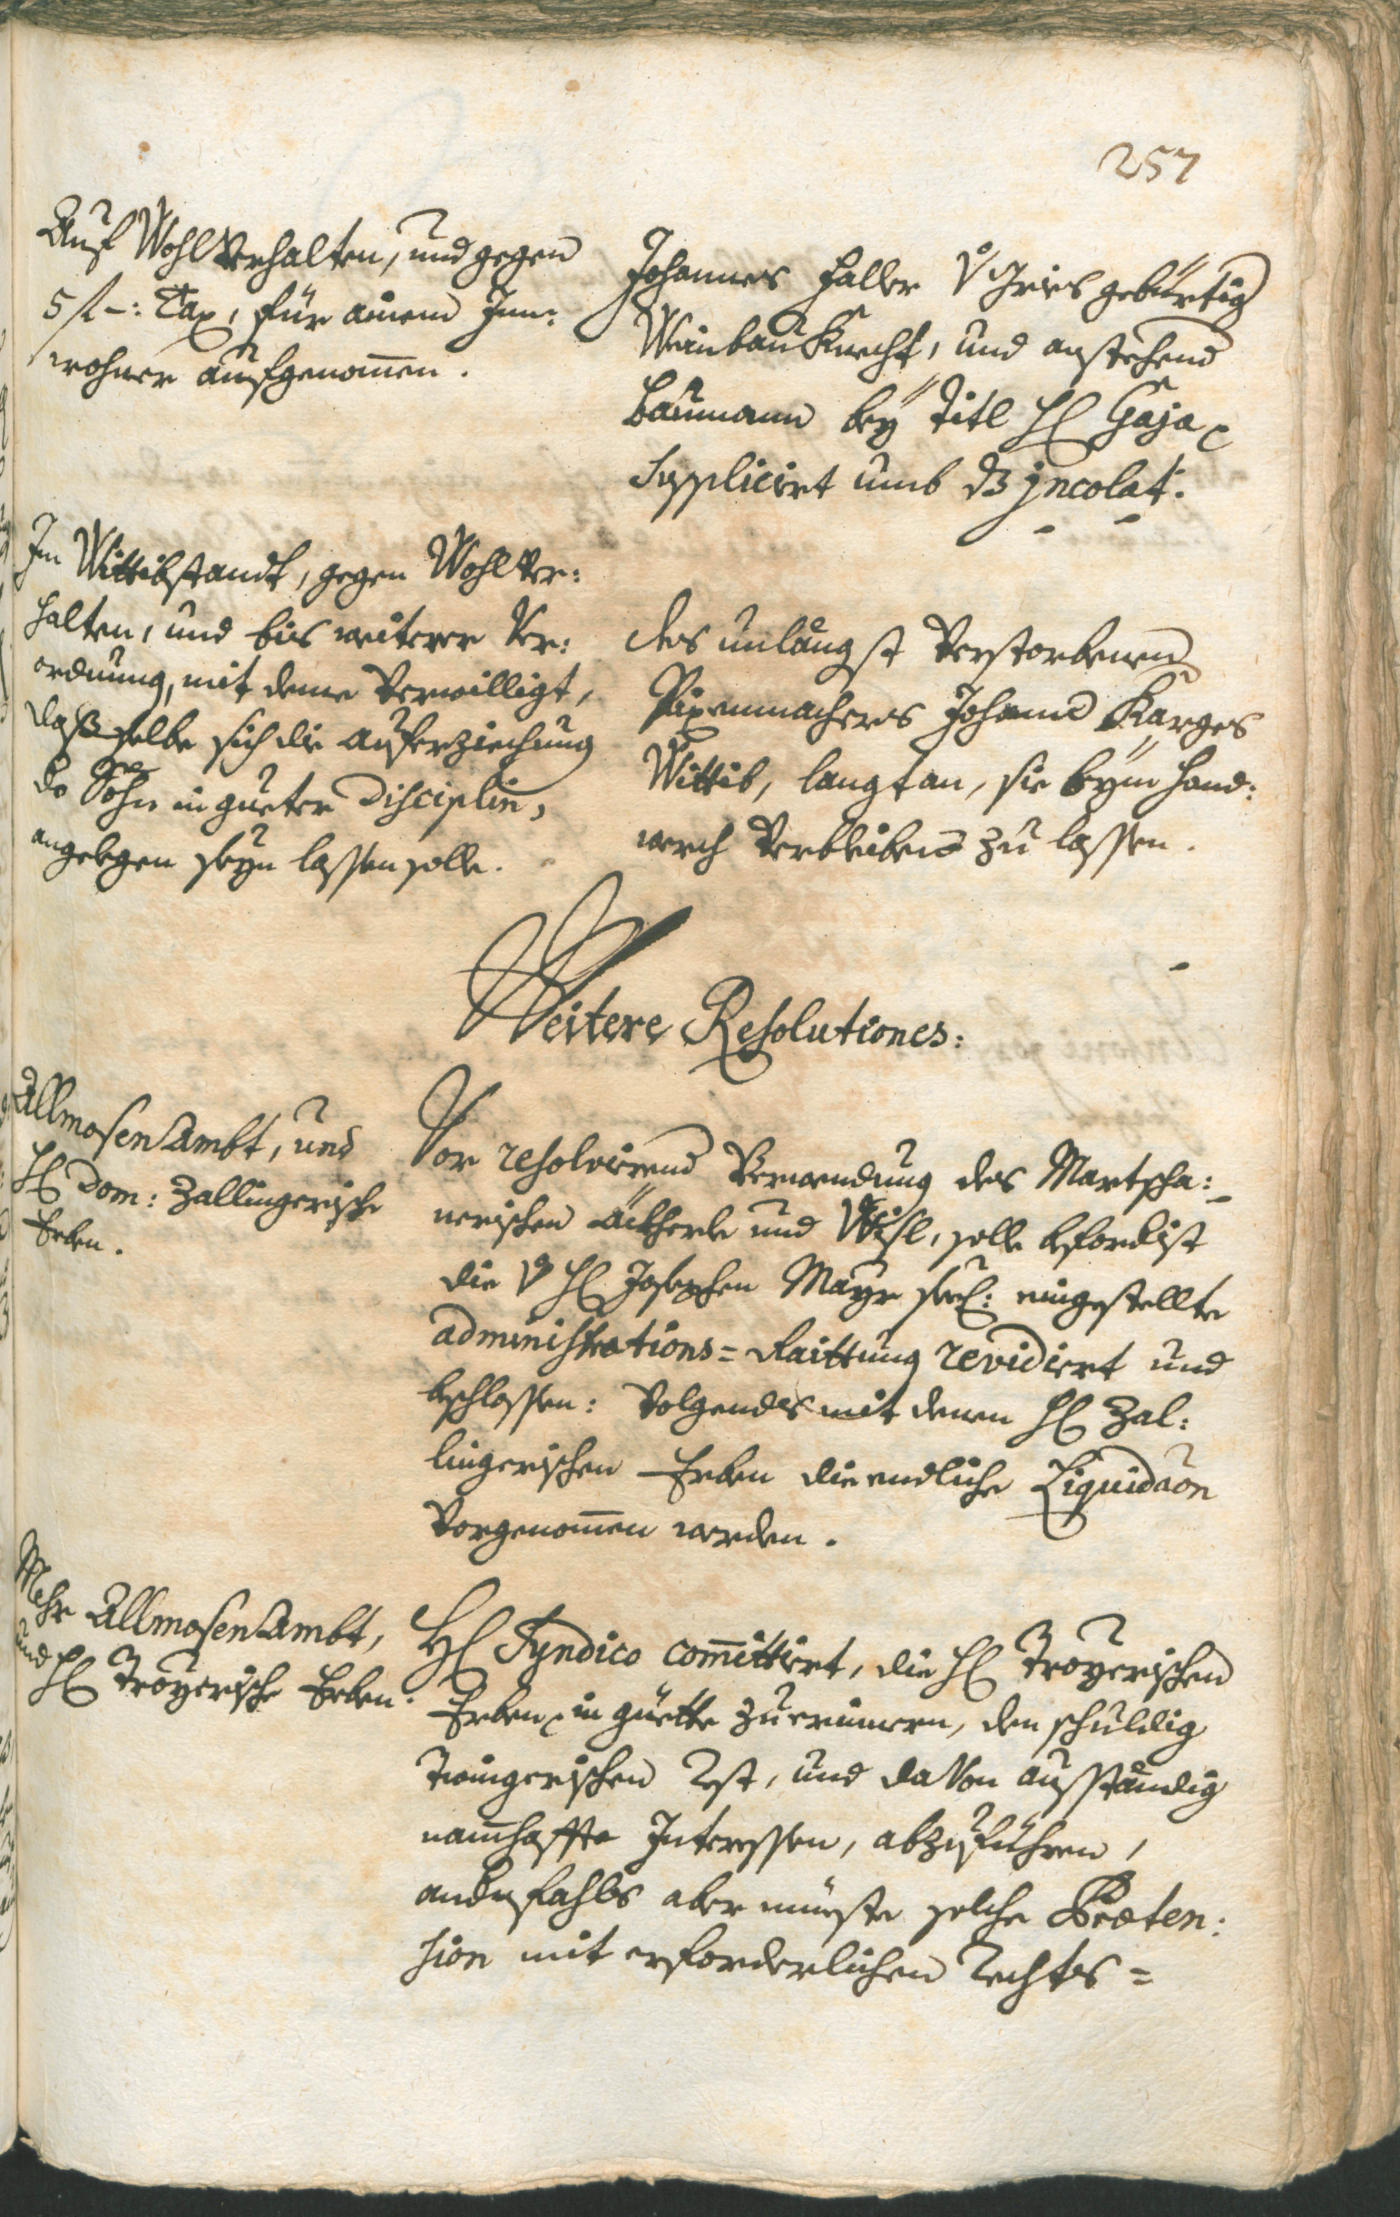 257
Auf Wohlverhalten, und gegen
5 f –: Tax, für ainen Inn:
wohner aufgenom̅en.
Johannes Haller v Gries gebürtig
Weinbau Knecht, und anstehend
Baumann bey Titl H Gaja
Supplicirt umb dz jncolat.
Im Wittibstandt, gegen Wohlver:
halten, und bis weitere Ver:
ordnung, mit deme verwilligt,
daß selbe sich die auferziechung
der Söhn in gueter Disciplin,
angelegen seyn lassen solle.
des unlängst verstorbenen
Pixenmachers Johann Karges
Wittib, langt an, sie beym hand:
werch verbleiben zu lassen.
Weitere Resolutiones:
Allmosen Ambt, und
H Dom: Zallingerische
Erben.
Vor resolvirend Verwendung des Martscha:
nerischen äckherle und Wisl, solle befordist
die v H Josephen Mayr seel: eingestellte
administrations= Raittung revidiert und
bschlossen: volgends mit denen H Zal:
lingerischen Erben die endliche Liquidaon
vorgenom̅en werden.
Mehr Allmosen Ambt,
und
H Troyerische Erben.
H Syndico com̅ittirt, die H Troyerischen
Erben in güette zu erinnern, den schuldig
Zwingerischen Rest, und davon ausständig
namhaffte Interessen, abzuführen,
andrfahls aber müeste solche Præten:
sion mit erforderlichen Rechts=